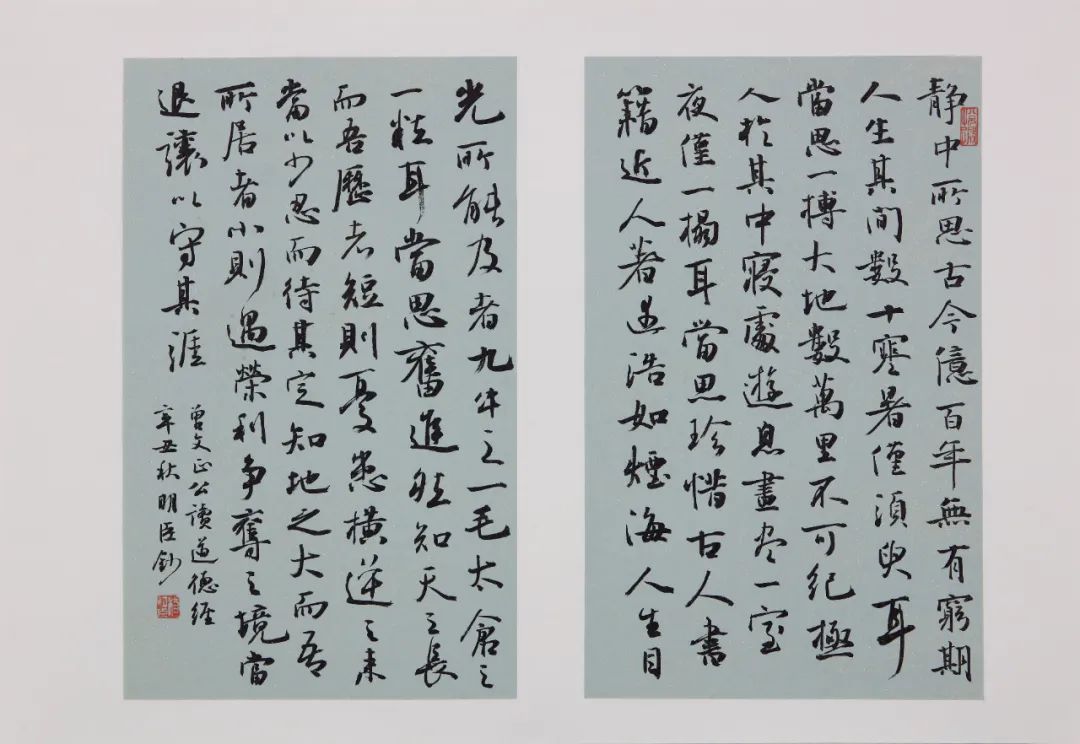 靜中所思古今億百年無有窮期
人生其間數十寒暑僅須臾耳
當思一搏大地數萬里不可紀極
人於其中寢處遊息晝尽一室
夜僅一榻耳當思珍惜古人書
籍近人著述浩如煙海人生目
光所能及者九牛之一毛太倉之
一粒耳當思奮進然知天之長
而吾歷者短則憂患橫逆之來
當以少忍而待其定知地之大而吾
所居者小則遇榮利爭奪之境當
退讓以守其涯
曾文正公讀道德經
辛丑秋明臣鈔